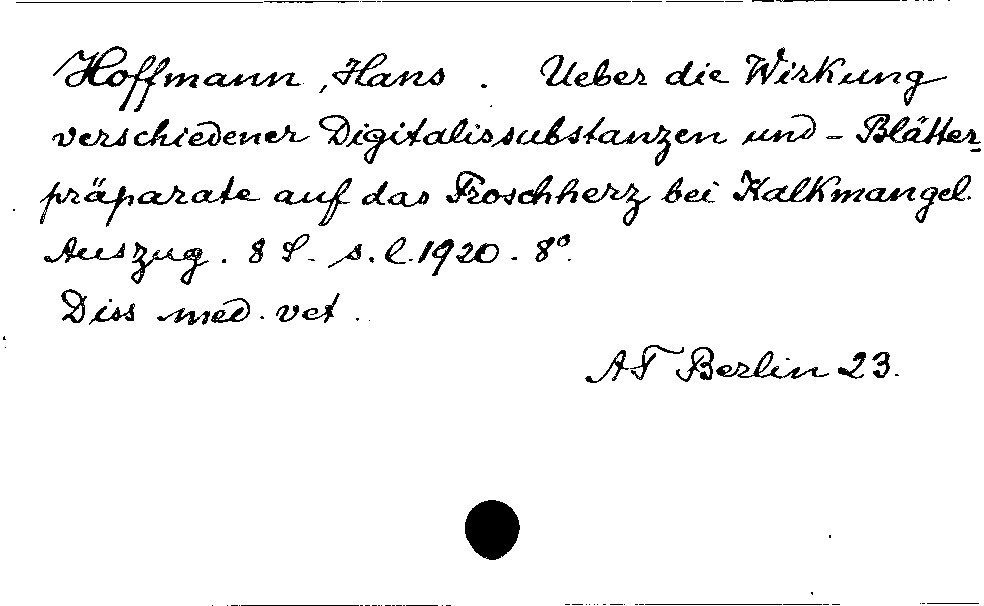 Hoffmann, Hans. Ueber die Wirkung
verschiedener Digitalissubstanzen und - Blätter-
präparate auf das Froschherz bei Kalkmangel.
Auszug. 8 S. s. l. 1920. 8°.
Diss med. vet.
AT Berlin 23.